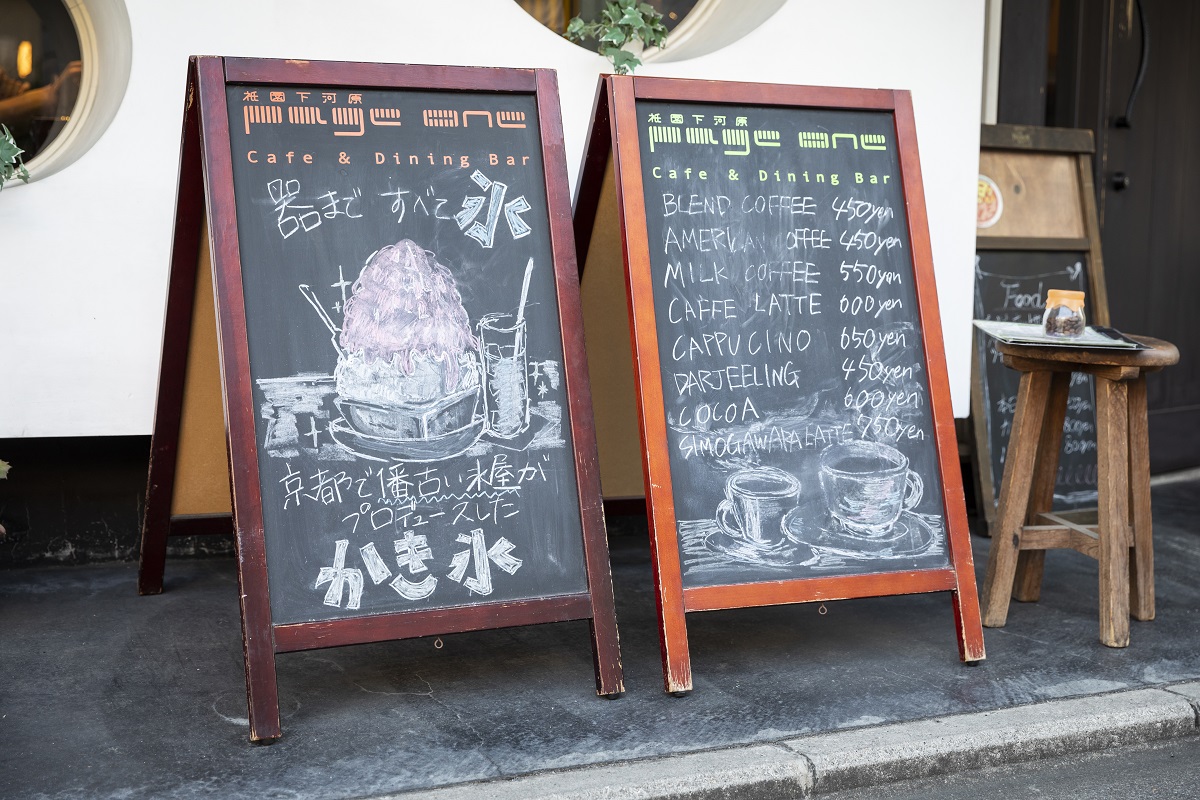 祇園下河原
page one
Cafe & Dining Bar
器まで すべて 氷
京都で1番古い氷屋が
プロデュースした
かき氷
祇園下河原
page one
Cafe & Dining Bar
BLEND COFFEE 450yen
AMERICAN COFFEE 450yen
MILK COFFEE 550yen
CAFFE LATTE 600yen
CAPPUCINO 650yen
DARJEELING 450yen
COCOA 600yen
SIMOGAWARA LATTE 750yen
Food